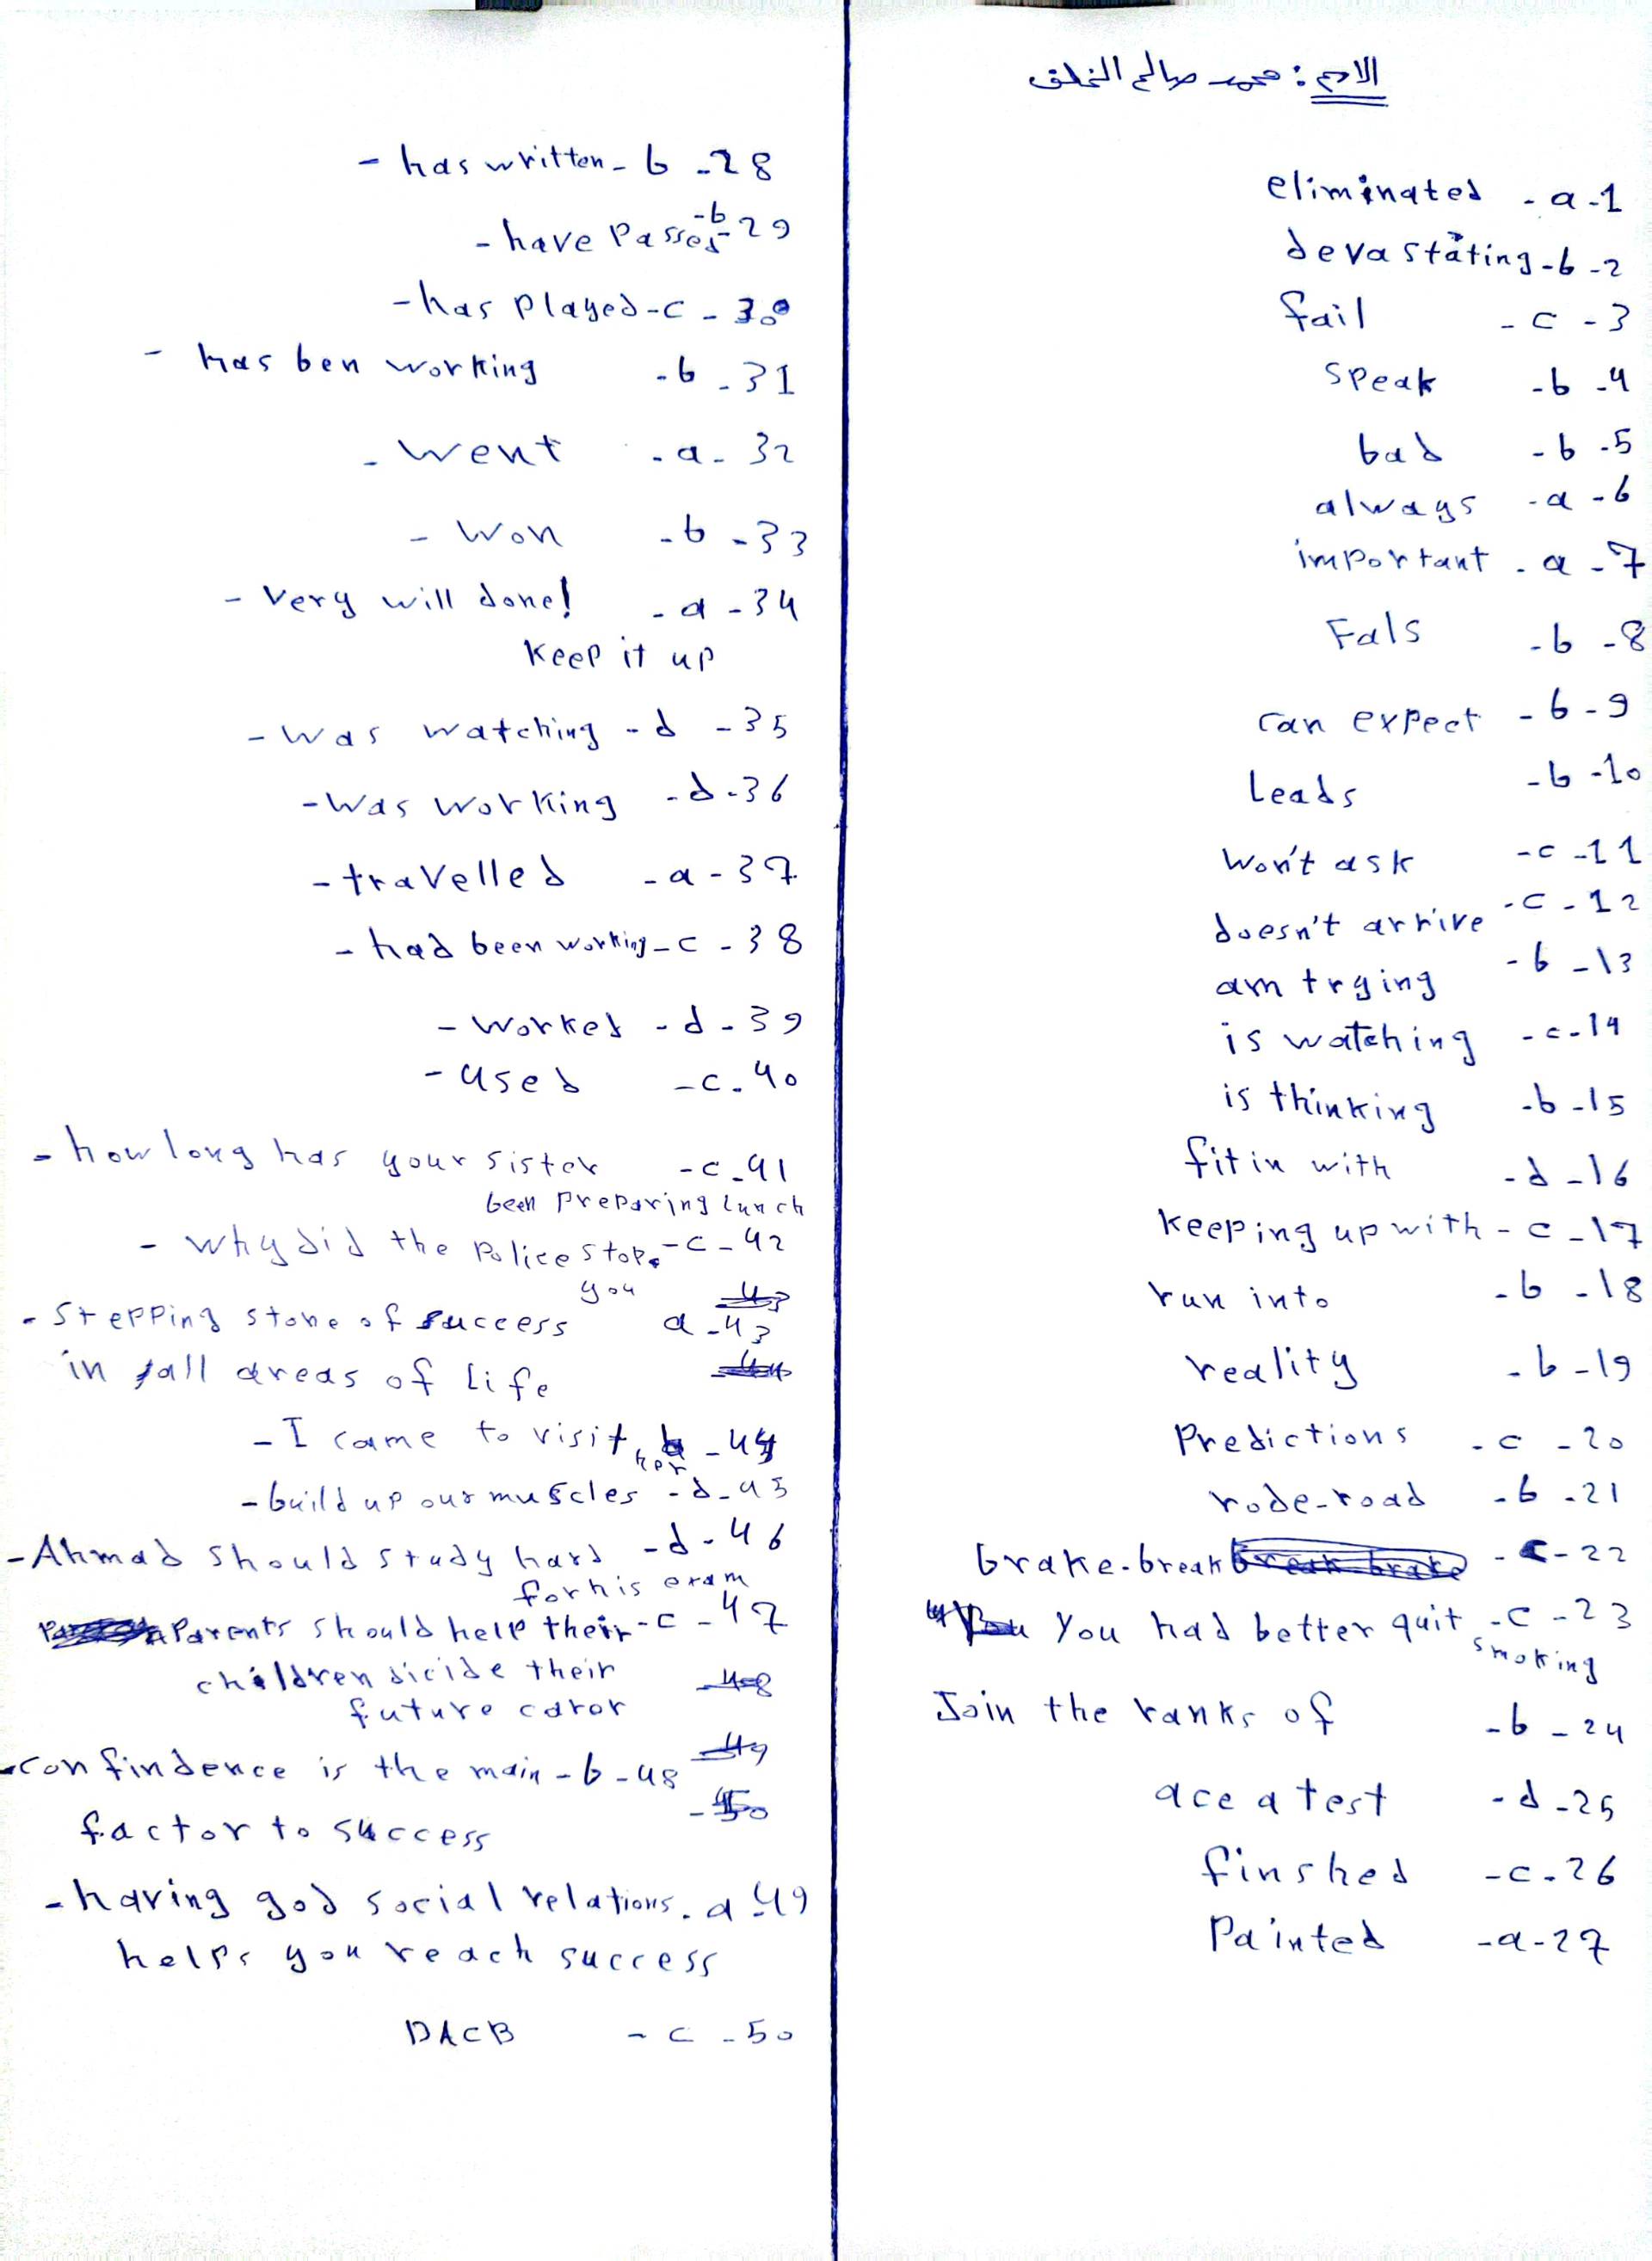 الاسم : محمد صالح
eliminated - a - 1
devastating - b - 2
fail - c - 3
speak - b - 4
bad - b - 5
always - a - 6
important - a - 7
Fals - b - 8
can expect - b - 9
Leads - b - 10
won't ask - c - 11
doesn't arrive - c - 12
am trying - b - 13
is watching - c - 14
is thinking - b - 15
fit in with - d - 16
keeping up with - c - 17
run into - b - 18
reality - b - 19
Predictions - c - 20
rode-road - b - 21
brake-break - c - 22
You had better quit - c - 23
smoking
Join the ranks of - b - 24
ace a test - d - 25
finshed - c - 26
Painted - a - 27
- has written - b - 28
- have Passed - b - 29
- has played - c - 30
- has ben working - b - 31
- went - a - 32
- won - b - 33
- Very will done! - a - 34
keep it up
- was watching - d - 35
- was working - d - 36
- travelled - a - 37
- had been working - c - 38
- worked - d - 39
- used - c - 40
- how long has your sister - c - 41
been preparing lunch
- why did the police stop - c - 42
you
- stepping stone of success a - 43
in all areas of life
- I came to visit - 44
her
- build up our muscles - d - 45
- Ahmad should study hard - d - 46
for his exam
Parents should help their - c - 47
children dicide their
future caror
- confindence is the main - b - 48
factor to success
- having god social relations - a - 49
helps you reach success
DACB - c - 50